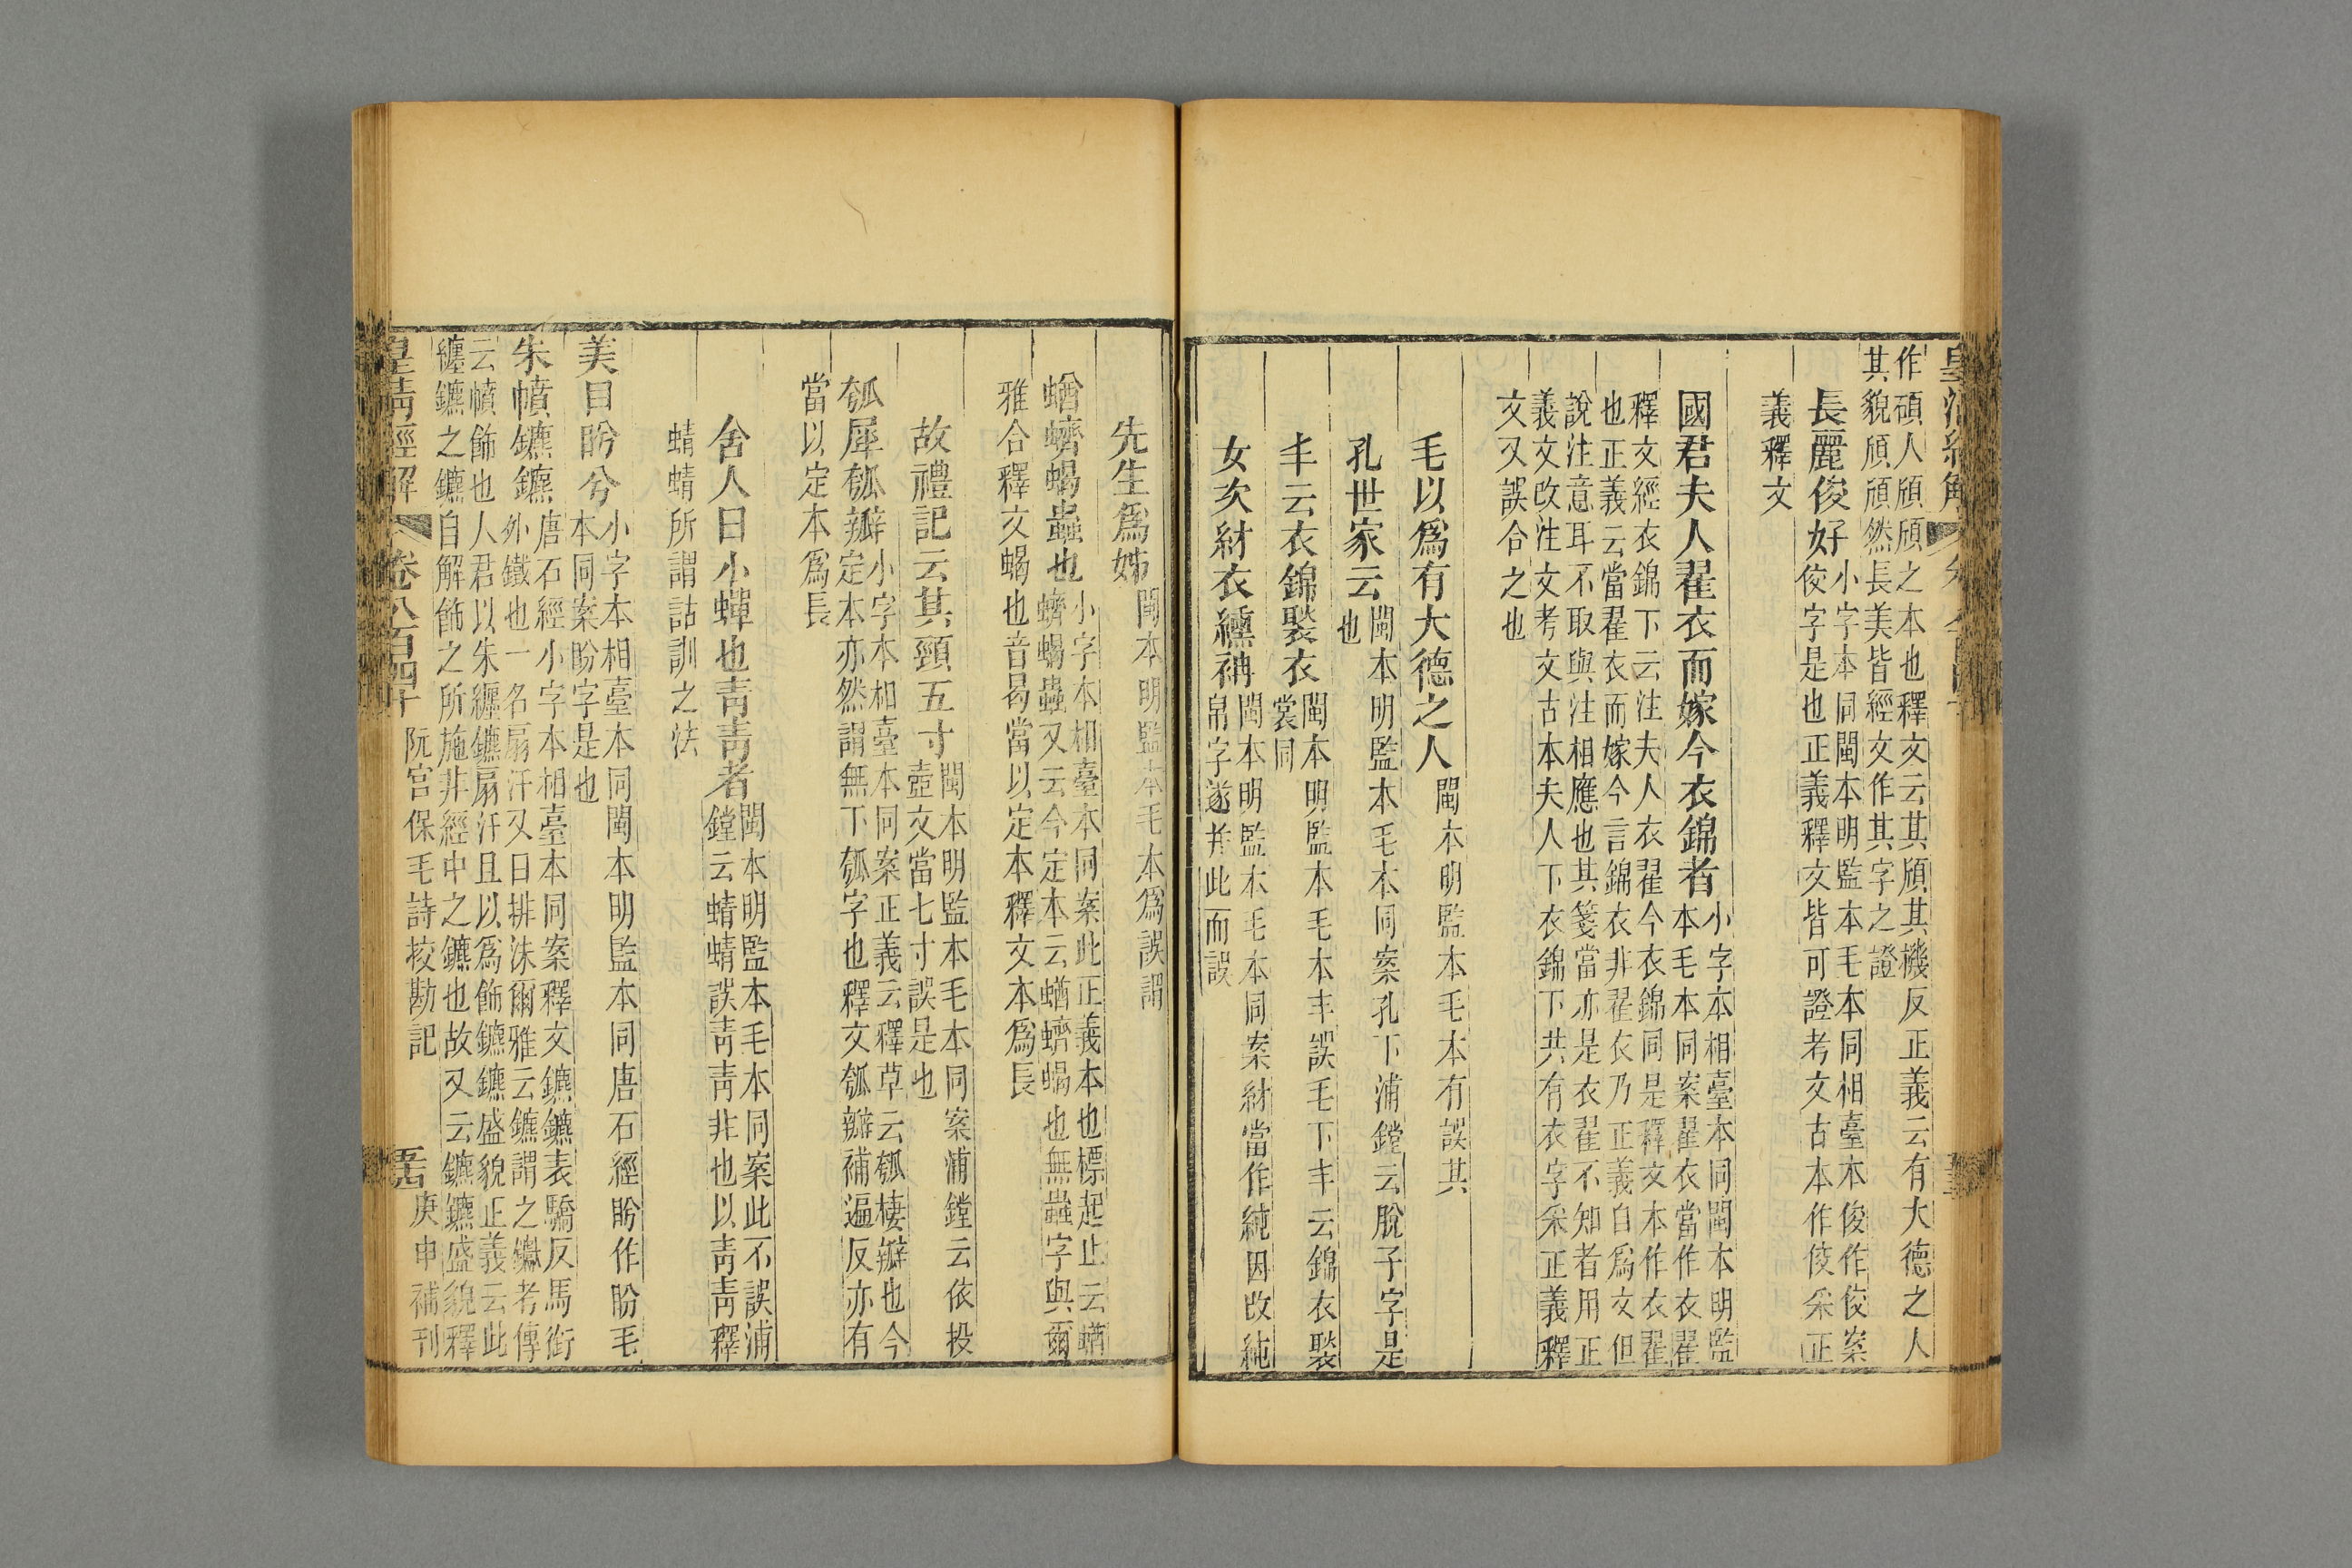 作碩人頎頎之本也釋文云其頎其機反正義云有大德之人
其貌頎頎然長美皆經文作其字之證
長麗俊好小字本同閩本明監本毛本同相臺本俊作佼案
佼字是也正義釋文皆可證考文古本作佼采正
義釋文
國君夫人翟衣而嫁今衣錦者小字本相臺本同閩本明監
本毛本同案翟衣當作衣翟
釋文經衣錦下云注夫人衣翟今衣錦同是釋文本作衣翟
也正義云當翟衣而嫁今言錦衣非翟衣乃正義自爲文但
說注意耳不取與注相應也其箋當亦是衣翟不知者用正
義文改注文考文古本夫人下衣錦下共有衣字采正義釋
文又誤合之也
毛以爲有大德之人閩本明監本毛本有誤其
孔世家云閩本明監本毛本同案孔下浦鏜云脫子字是
也
丰云衣錦褧衣閩本明監本毛本丰誤毛下丰云錦衣褧
裳同
女次紂衣纁袡閩本明監本毛本同案紂當作純因改純
帛字遂并此而誤
先生爲姊閩本明監本毛本爲誤謂
蝤蠐蝎蟲也小字本相臺本同案此正義本也標起止云蝤
蠐蝎蟲又云今定本云蝤蠐蝎也無蟲字與爾
雅合釋文蝎也音曷當以定本釋文本爲長
故禮記云其頸五寸閩本明監本毛本同案浦鏜云依投
壺文當七寸誤是也
瓠犀瓠瓣小字本相臺本同案正義云釋草云瓠棲瓣也今
定本亦然謂無下瓠字也釋文瓠瓣補遍反亦有
當以定本爲長
舍人曰小蟬也靑靑者閩本明監本毛本同案此不誤浦
鏜云蜻蜻誤靑靑非也以靑靑釋
蜻蜻所謂詁訓之法
美目盼兮小字本相臺本同閩本明監本同唐石經盼作盼毛
本同案盼字是也
朱幩鑣鑣唐石經小字本相臺本同案釋文鑣鑣表驕反馬銜
外鐵也一名扇汗又曰排沫爾雅云鑣謂之钀考傳
云幩飾也人君以朱纏鑣扇汗且以爲飾鑣鑣盛貌正義云此
纏鑣之鑣自解飾之所施非經中之鑣也故又云鑣鑣盛貌釋
皇淸經解 卷八百四十 阮宮保毛詩挍勘記 庚申補刊